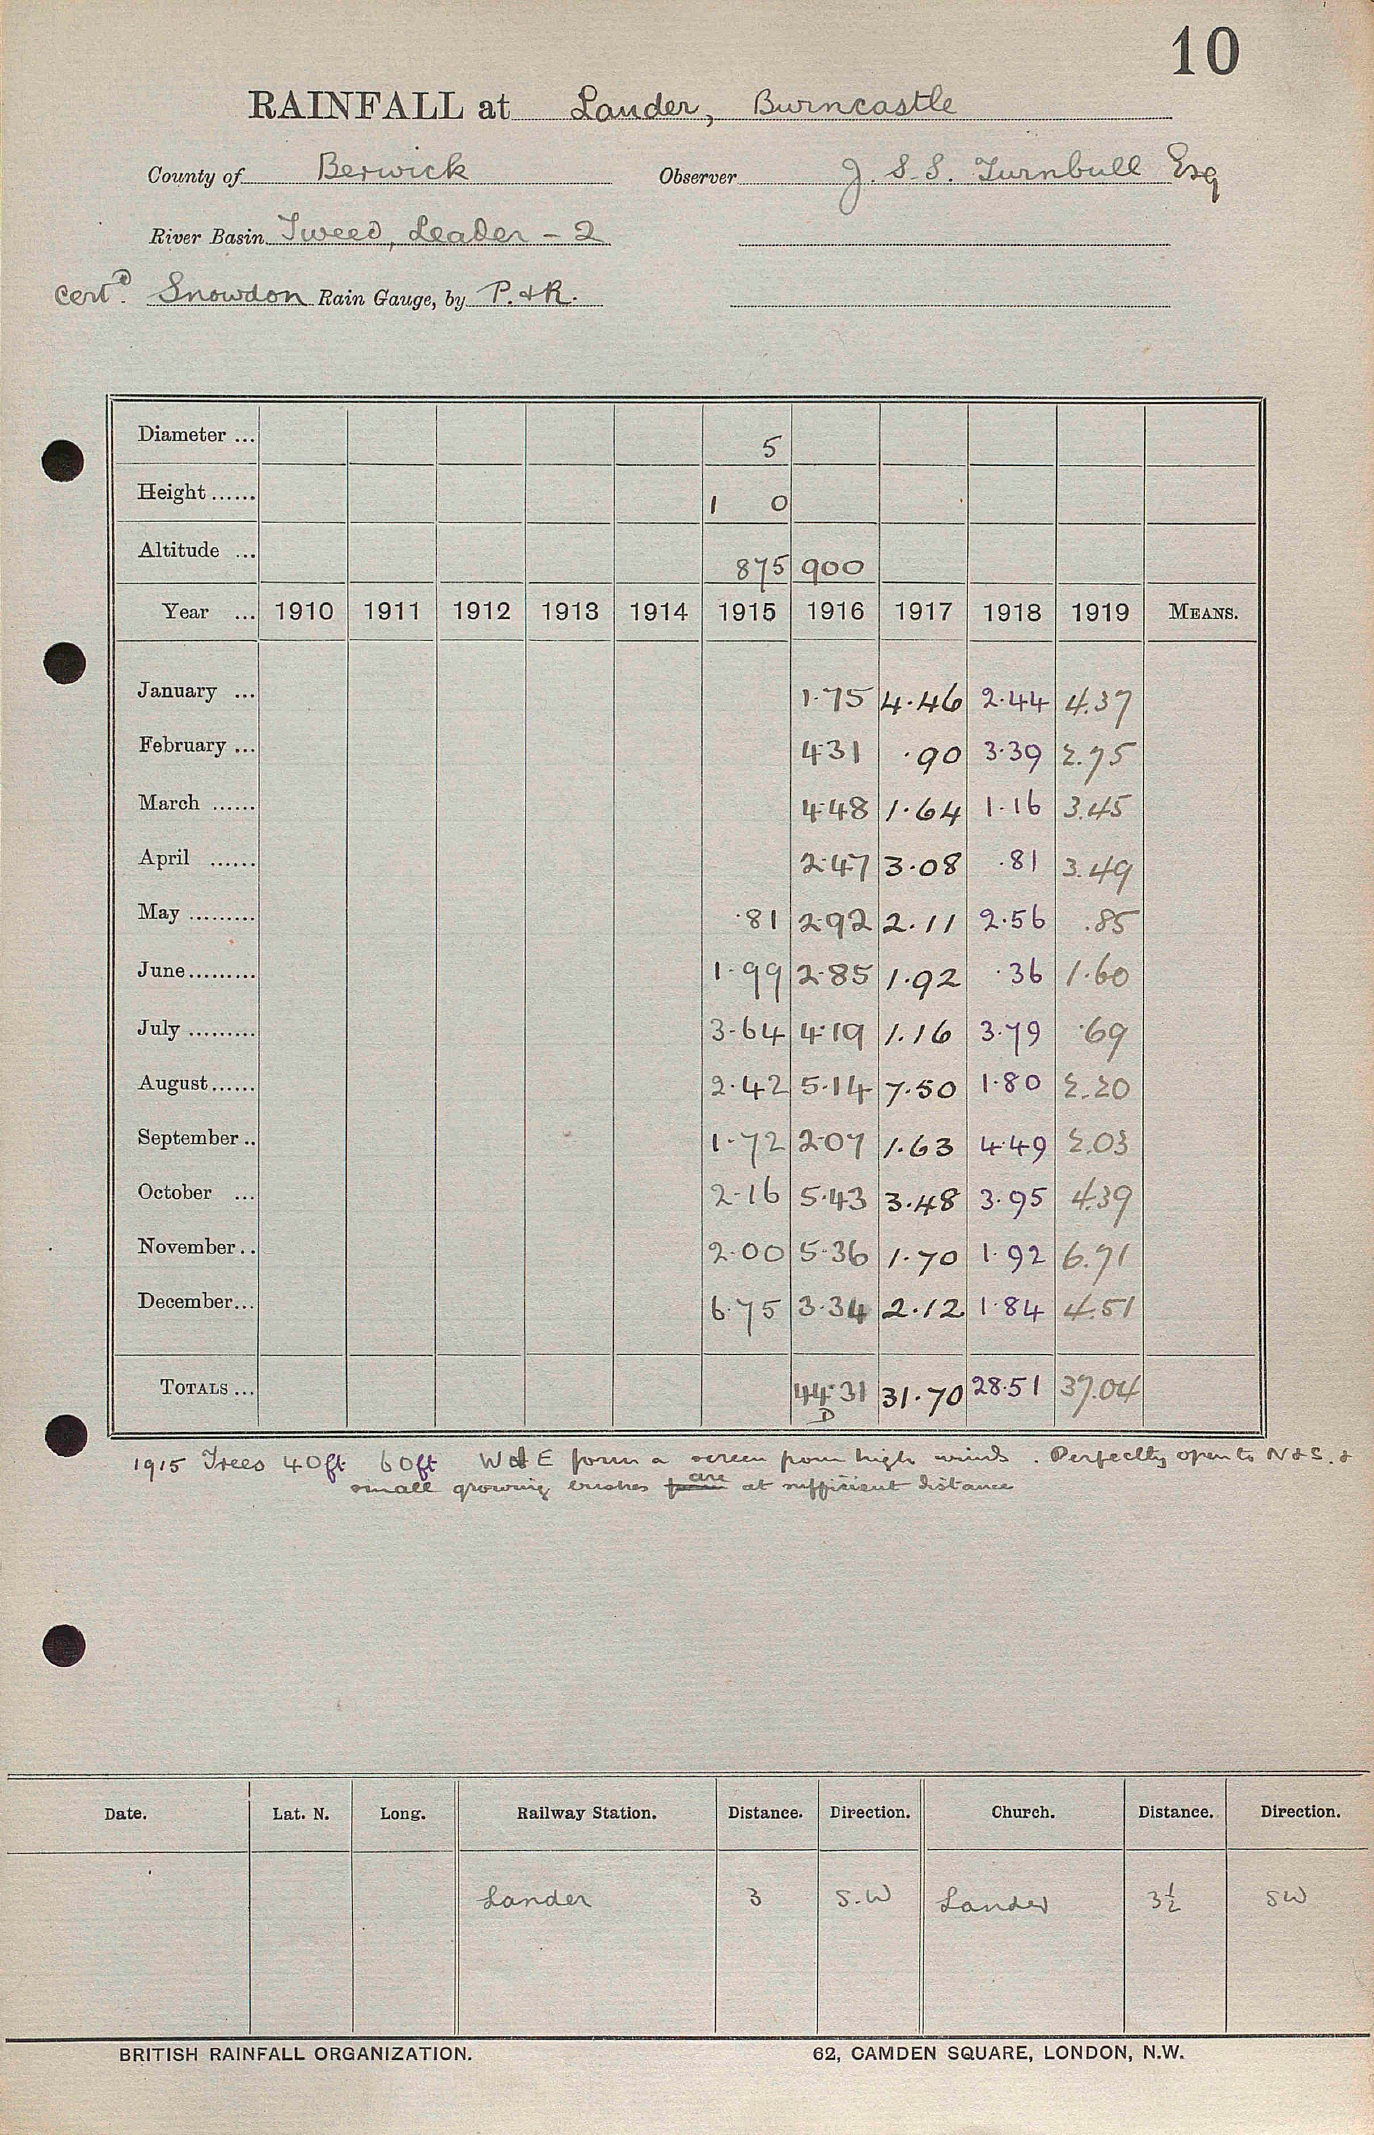 10
RAINFALL at Lauder, Burncastle
County of Berwick Observer J. S. S. Turnbull Esq
River Basin Tweed, Leader - 2
Certd. Snowdon Rain Gauge, by P. & R.
Diameter ... 5
Height ...... 1 0
Altitude ... 875 900
Year ... 1910 1911 1912 1913 1914 1915 1916 1917 1918 1919 MEANS.
January ... 1.75 4.46 2.44 4.37
February ... 4.31 .90 3.39 2.75
March ...... 4.48 1.64 1.16 3.45
April ...... 2.47 3.08 .81 3.49
May ......... .81 2.92 2.11 2.56 .85
June ......... 1.99 2.85 1.92 .36 1.60
July ......... 3.64 4.19 1.16 3.79 .69
August ...... 2.42 5.14 7.50 1.80 2.20
September .. 1.72 2.07 1.63 4.49 2.03
October ... 2.16 5.43 3.48 3.95 4.39
November .. 2.00 5.36 1.70 1.92 6.71
December ... 6.75 3.34 2.12 1.84 4.51
TOTALS ... 44.31 31.70 28.51 37.04
D
1915 Trees 40ft 60ft W & E form a screen from high winds. Perfectly open to N & S. &
small growing bushes are at sufficient distance
Date. Lat. N. Long. Railway Station. Distance. Direction. Church. Distance. Direction.
Lauder 3 S.W Lauder 3½ SW
BRITISH RAINFALL ORGANIZATION. 62, CAMDEN SQUARE, LONDON, N.W.